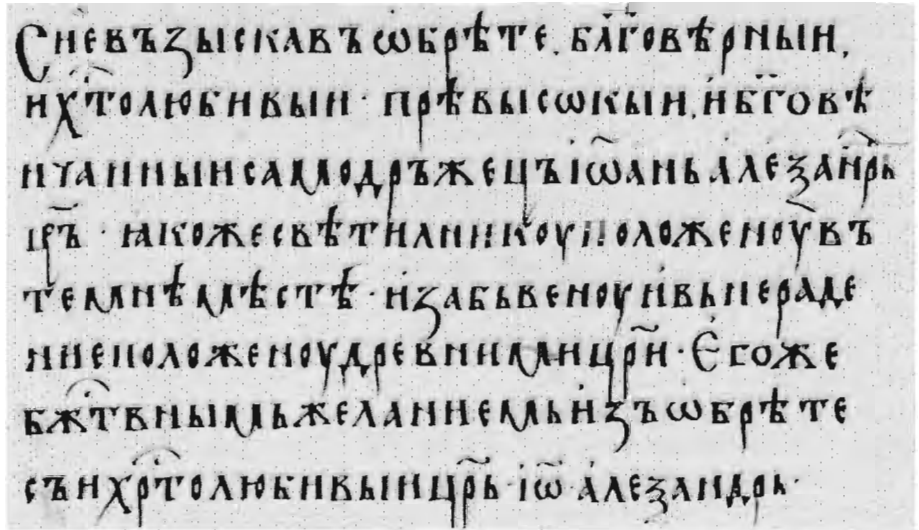 Сневъзыскавъ ѡбрѣте. бл҃говѣрныи.
и х҃толюбивыи · прѣвысѡкыи. и б҃говѣ
нчанныи самодръжецъ іѡ҃ань алеѯан҃рь
цр҃ъ · ꙗкоже свѣтилникоу положеноу въ
темнѣ мѣстѣ · и забьвеноу и вь нераде
ние положеноу древними цр҃и · Єгоже
бж҃твнымь желаниемь изъѡбрѣте
сън хр҃толюбивыи цр҃ь · іѡ҃ · алеѯандрь·